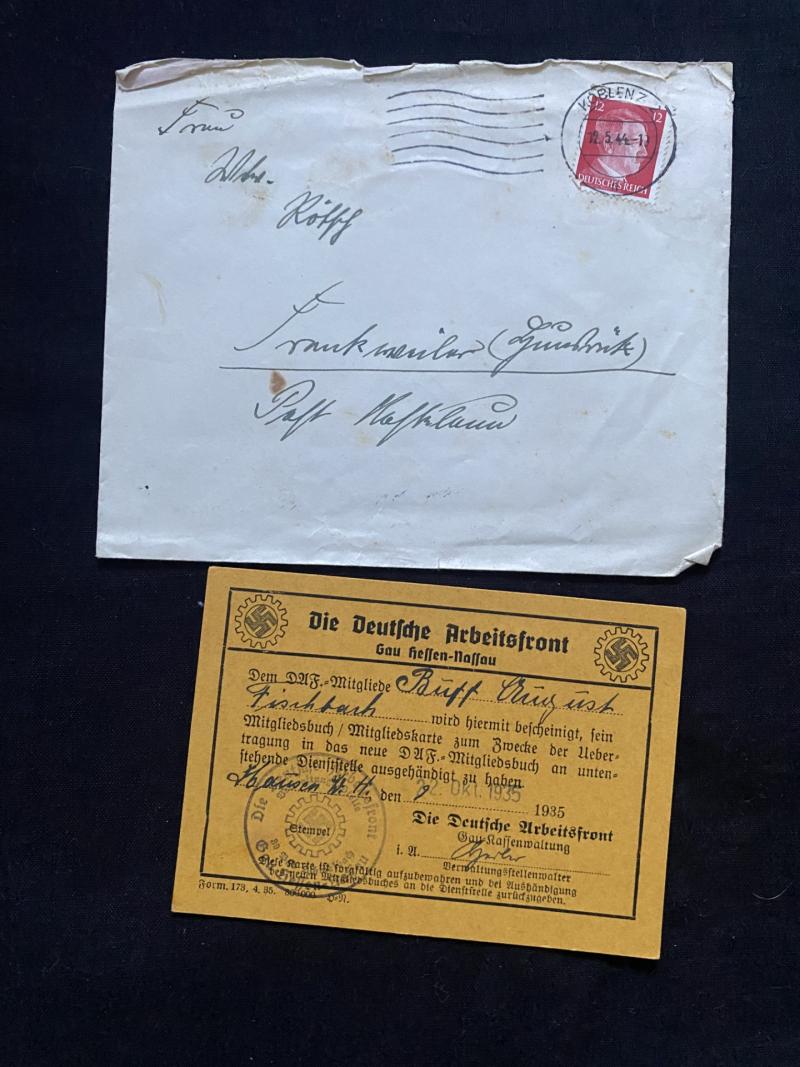 KOBLENZ
12 12
12.5.44.-1
DEUTSCHES REICH
Frau
Wtw.
Frankweiler (Hunsrück)
Post Kastelaun
Die Deutsche Arbeitsfront
Gau Hessen-Nassau
Dem DAF.-Mitgliede Buff August
Fischbach wird hiermit bescheinigt, sein
Mitgliedsbuch / Mitgliedskarte zum Zwecke der Ueber-
tragung in das neue DAF.-Mitgliedsbuch an unten-
stehende Dienststelle ausgehändigt zu haben.
Hausen den 22. Okt. 1935 1935
Die Deutsche Arbeitsfront
Gau-Kassenwaltung
Stempel
i. A.
Verwaltungsstellenwalter
Diese Karte ist sorgfältig aufzubewahren und bei Aushändigung
des neuen Mitgliedsbuches an die Dienststelle zurückzugeben.
Form. 173, 4. 35. 300000 H-N.